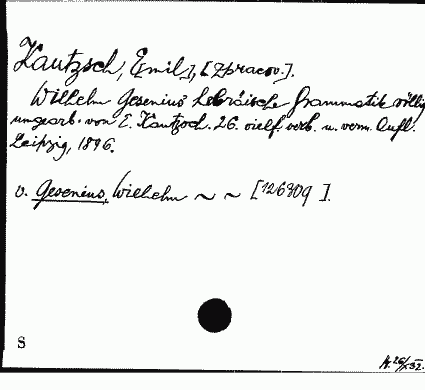 Kautzsch, Emil], [zpracov.].
Wilhelm Gesenius' Hebräische Grammatik völlig
umgearb. von E. Kautzsch. 26. vielf. verb. u. verm. Aufl.
Leipzig, 1896.
v. Gesenius, Wilhelm ~ ~ [126309].
S